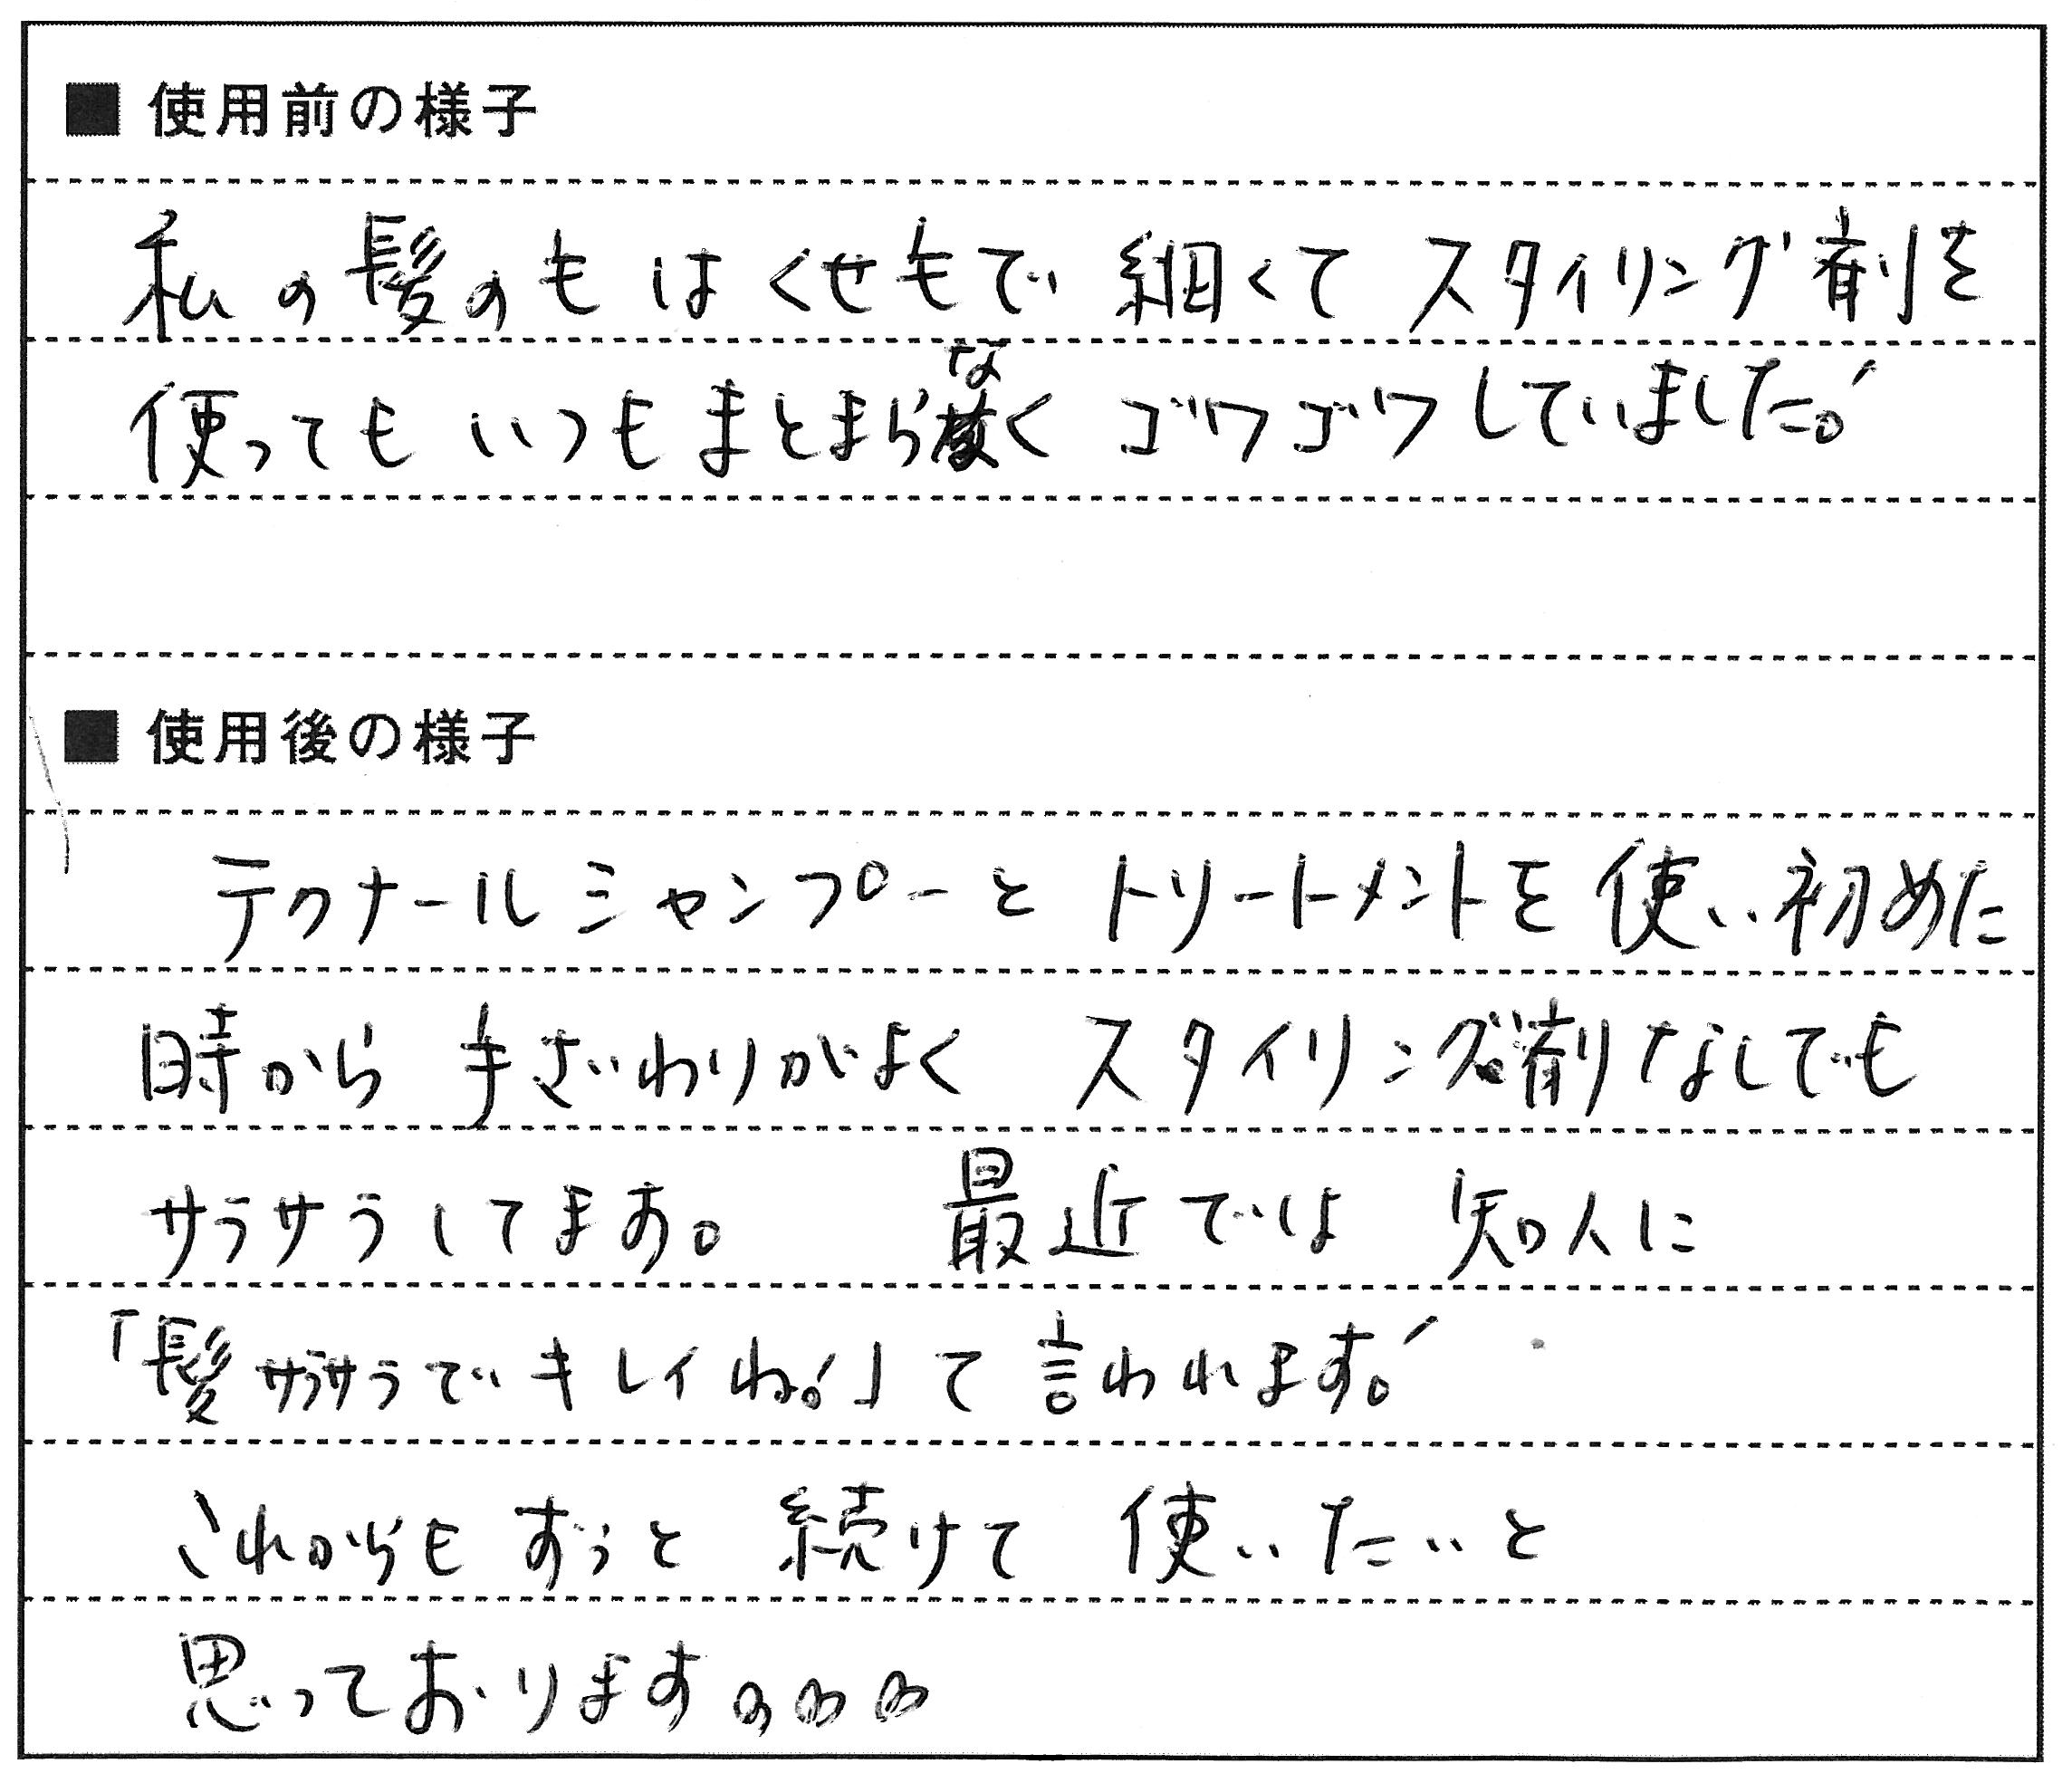 ■ 使用前の様子
私の髪の毛はくせ毛で細くてスタイリング剤を
使ってもいつもまとまらなくゴワゴワしていました!
■ 使用後の様子
テクナールシャンプーとトリートメントを使い初めた
時から手ざわりがよくスタイリング剤なしでも
サラサラしてます。 最近では知人に
「髪サラサラでキレイね!」て言われます!
これからもずうと続けて使いたいと
思っております。。。